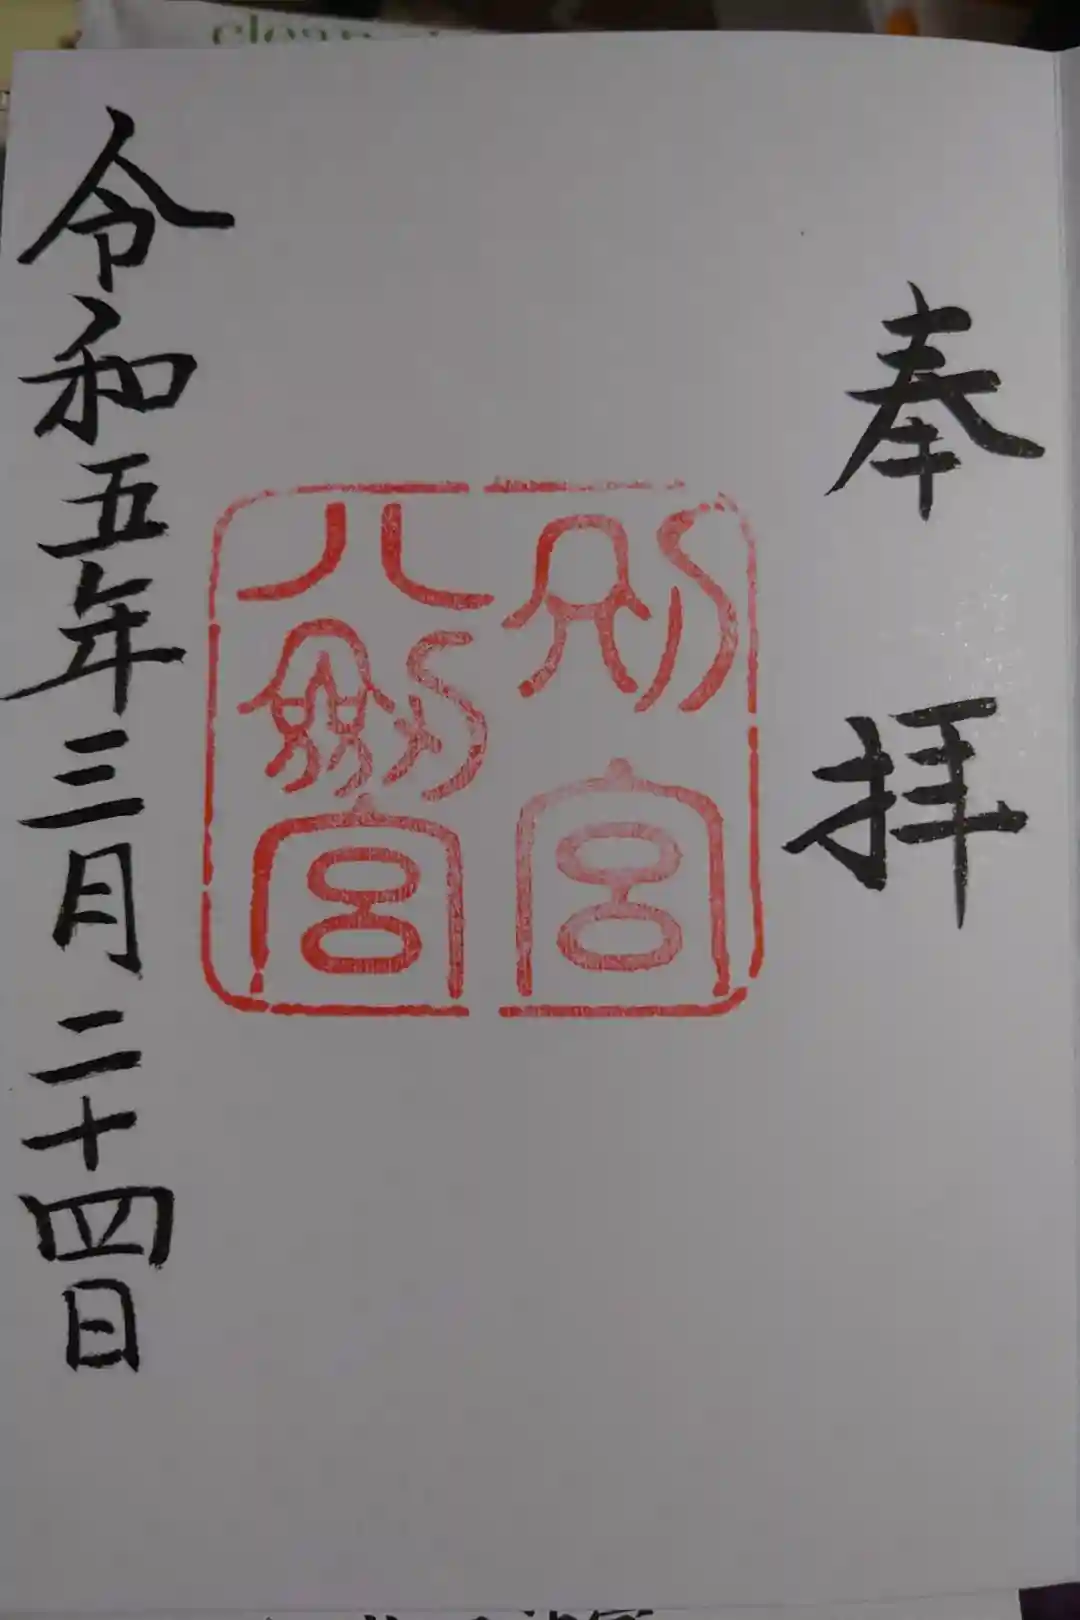 奉拝
別宮
八劔宮
令和五年三月二十四日